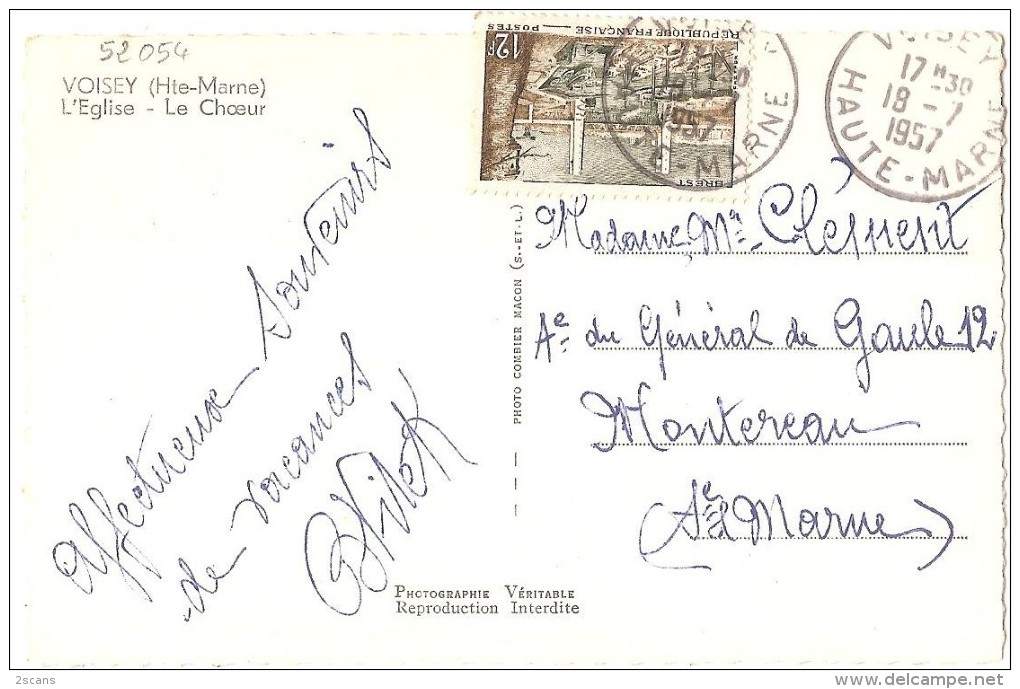 52 054
VOISEY (Hte-Marne)
L'Eglise - Le Chœur
12F
POSTES
REPUBLIQUE FRANÇAISE
BREST
1957
-MARNE
VOISEY
17 H 30
18 - 7
1957
HAUTE-MARNE
Affectueux Souvenirs
de vacances
PHOTO COMBIER MACON (S.-ET-L.)
Madame Mn Clément
Ae du Général de Gaule 12
Montereau
(Se et Marne)
PHOTOGRAPHIE VÉRITABLE
Reproduction Interdite
2scans
delcampe.net